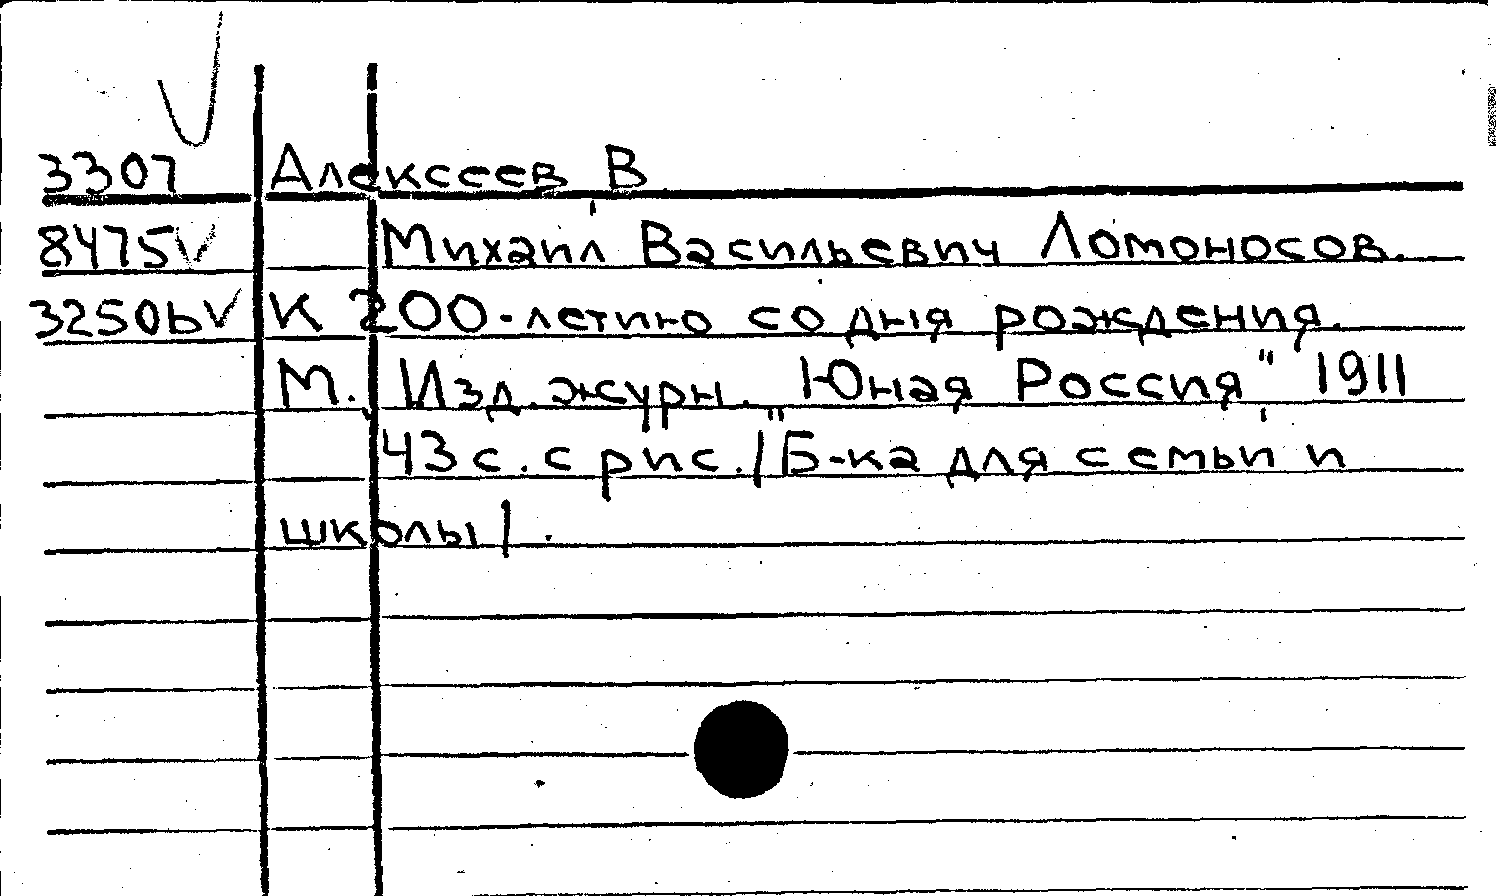 3307 Алексеев В
8475 Михаил Васильевич Ломоносов.
3250b К 200-летию со дня рождения.
М. Изд. журн. "Юная Россия" 1911
43 с. с рис. /Б-ка для семьи и
школы/.